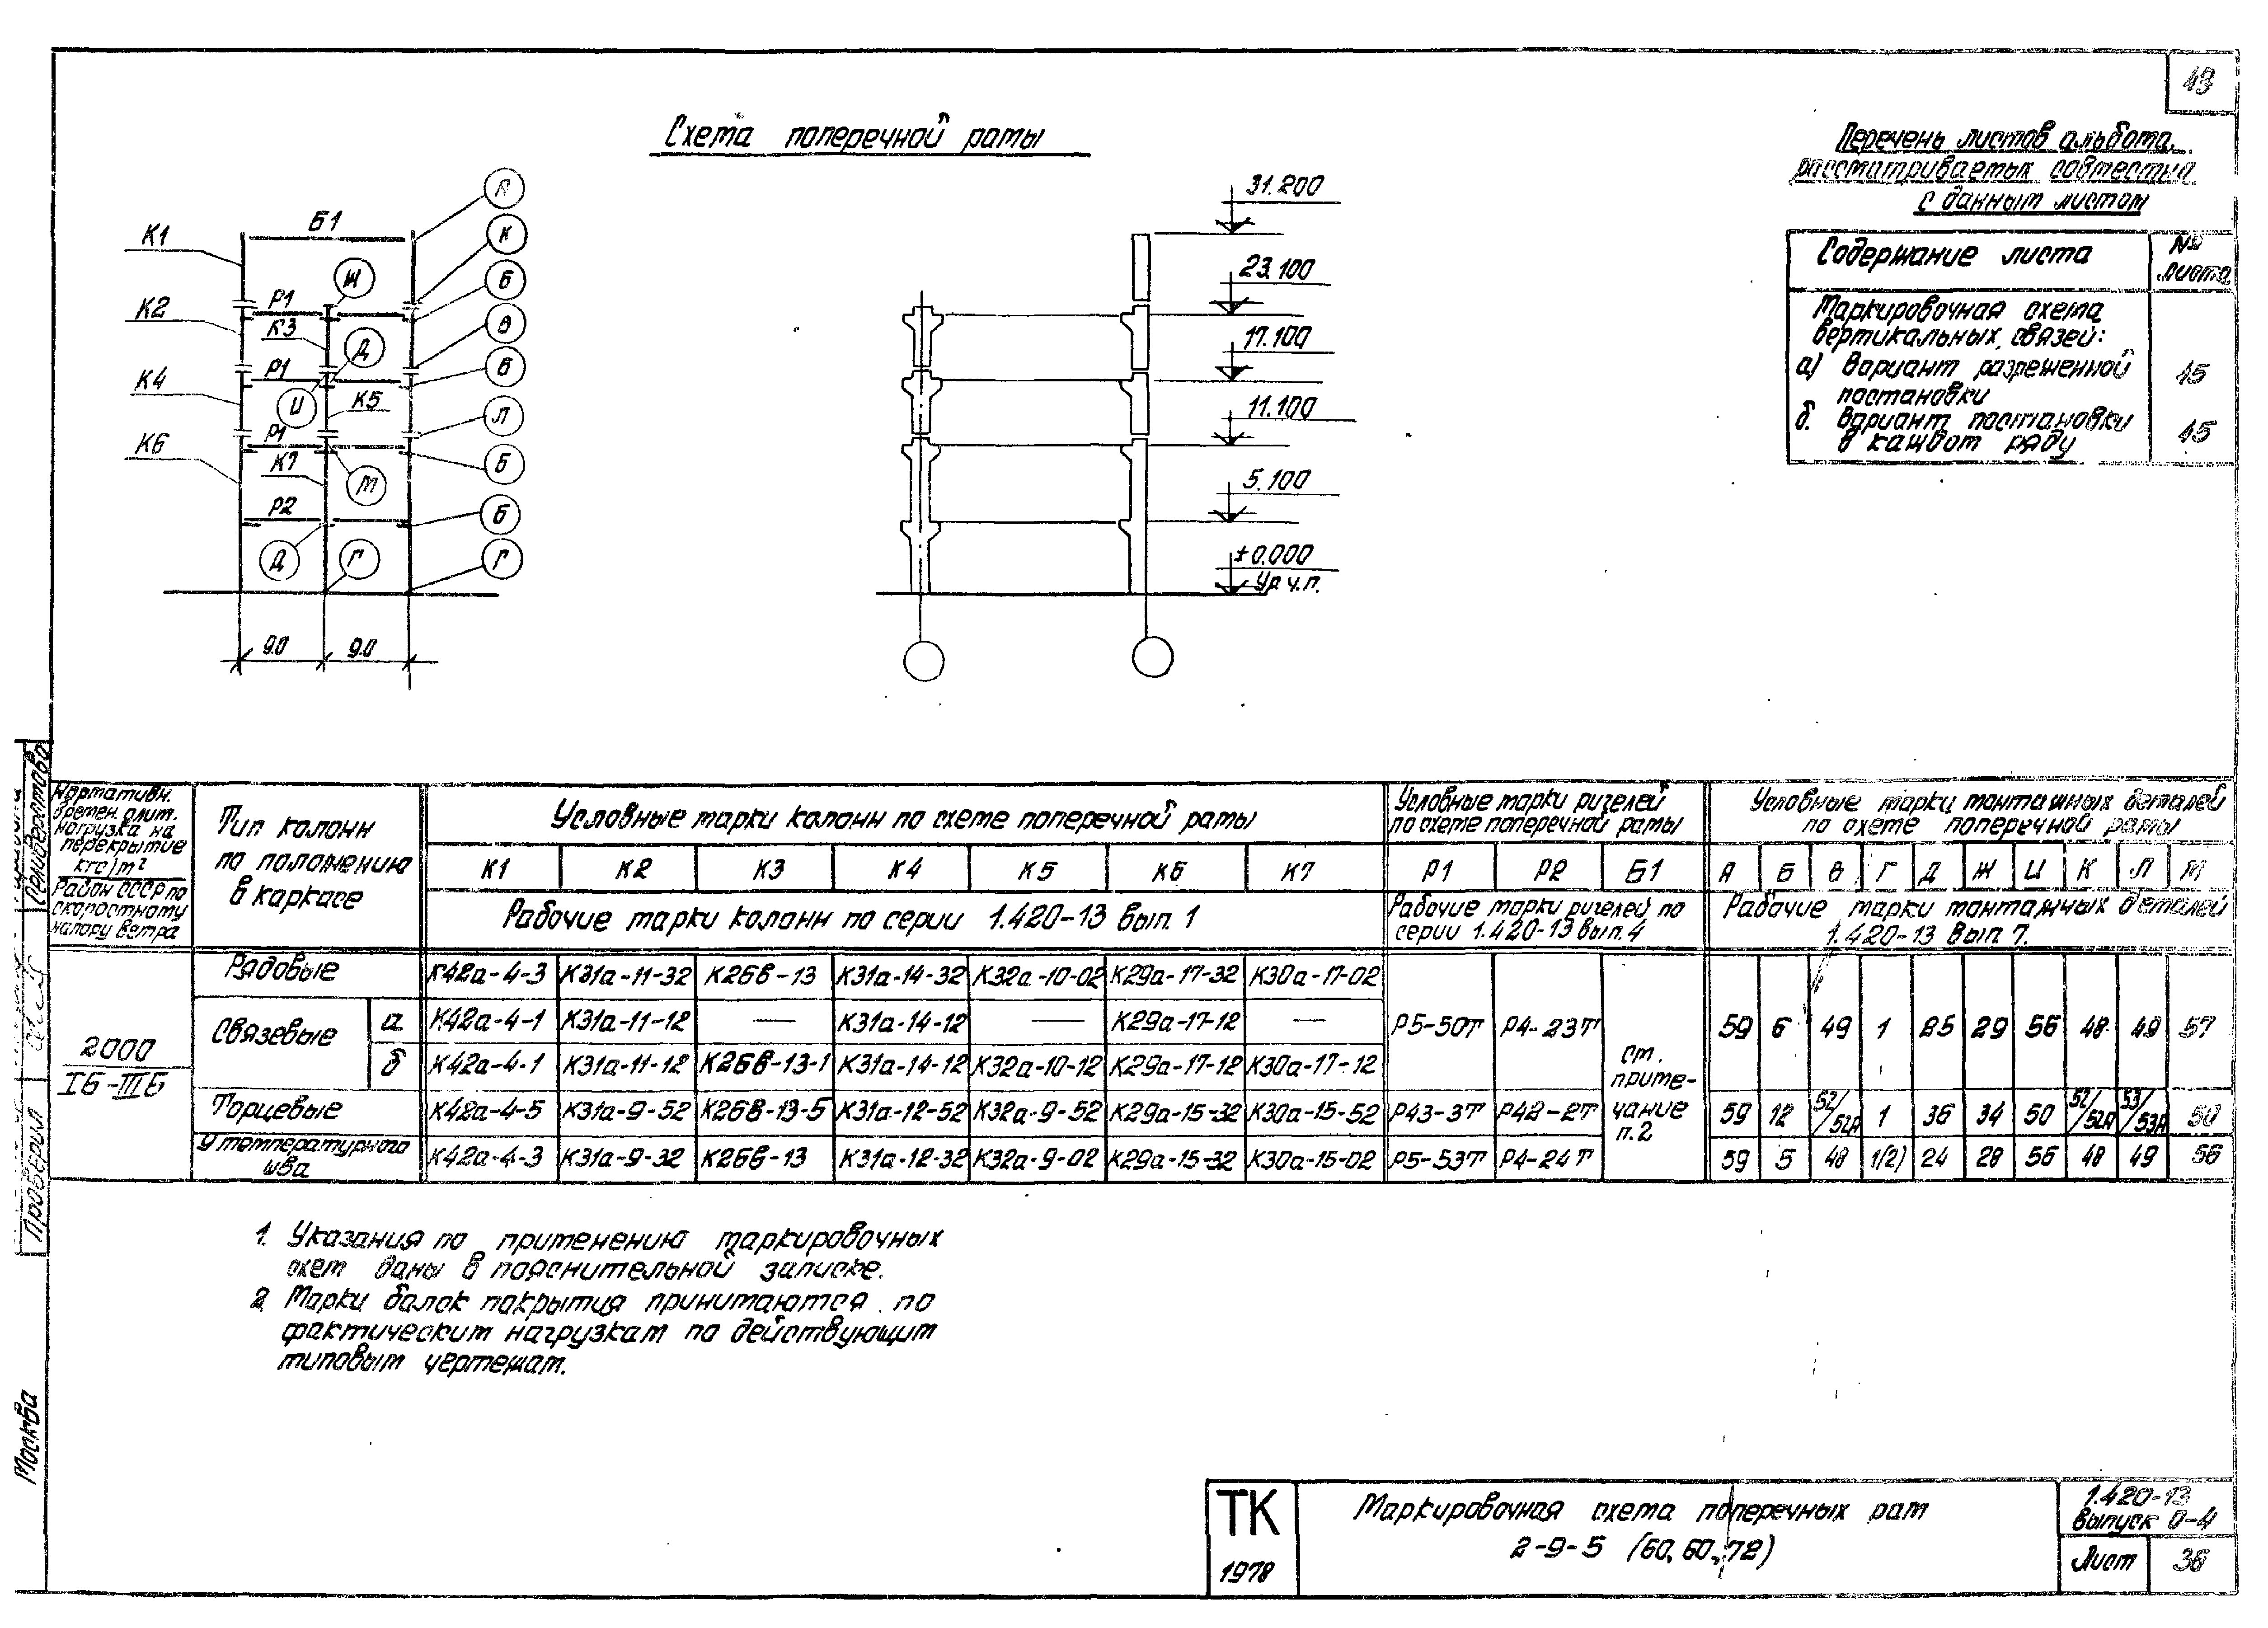 43
Схема поперечной рамы
Перечень листов альбома,
рассматриваемых совместно
с данным листом
Содержание листа
№
листа
Маркировочная схема
вертикальных связей:
а) Вариант разреженной
постановки
45
б. Вариант постановки
в каждом ряду
45
К1
К2
К4
К6
Б1
Р1
К3
Р1
К5
Р1
К7
Р2
Ж
Д
И
М
Д
Г
К
Б
В
Б
Л
Б
Б
Г
9.0
9.0
31.200
23.100
17.100
11.100
5.100
±0.000
Ур.ч.п.
Нормативн.
времен. длит.
нагрузка на
перекрытие
кгс/м²
Район СССР по
скоростному
напору ветра
Тип колонн
по положению
в каркасе
Условные марки колонн по схеме поперечной рамы
К1 К2 К3 К4 К5 К6 К7
Рабочие марки колонн по серии 1.420-13 вып. 1
Условные марки ригелей
по схеме поперечной рамы
Р1 Р2 Б1
Рабочие марки ригелей по
серии 1.420-13 вып. 4
Условные марки монтажных деталей
по схеме поперечной рамы
А Б В Г Д Ж И К Л М
Рабочие марки монтажных деталей
1.420-13 Вып. 7.
2000
IБ-IIIБ
Рядовые К42а-4-3 К31а-11-32 К26в-13 К31а-14-32 К32а-10-02 К29а-17-32 К30а-17-02
Связевые
а К42а-4-1 К31а-11-12 — К31а-14-12 — К29а-17-12 —
б К42а-4-1 К31а-11-12 К26в-13-1 К31а-14-12 К32а-10-12 К29а-17-12 К30а-17-12
Р5-50Т Р4-23Т
59 6 49 1 25 29 56 48 49 57
Торцевые К42а-4-5 К31а-9-52 К26в-13-5 К31а-12-52 К32а-9-52 К29а-15-32 К30а-15-52 Р43-3Т Р42-2Т
59 12 52/52А 1 36 34 50 52/52А 53/53А 50
У температурного
шва
К42а-4-3 К31а-9-32 К26в-13 К31а-12-32 К32а-9-02 К29а-15-32 К30а-15-02 Р5-53Т Р4-24Т
59 5 48 1(2) 24 28 56 48 49 56
См.
приме-
чание
п.2
1. Указания по применению маркировочных
схем даны в пояснительной записке.
2. Марки балок покрытия принимаются по
фактическим нагрузкам по действующим
типовым чертежам.
Проверил
Селивертова
Москва
ТК
1978
Маркировочная схема поперечных рам
2-9-5 (60, 60, 72)
1.420-13
Выпуск 0-4
Лист
36